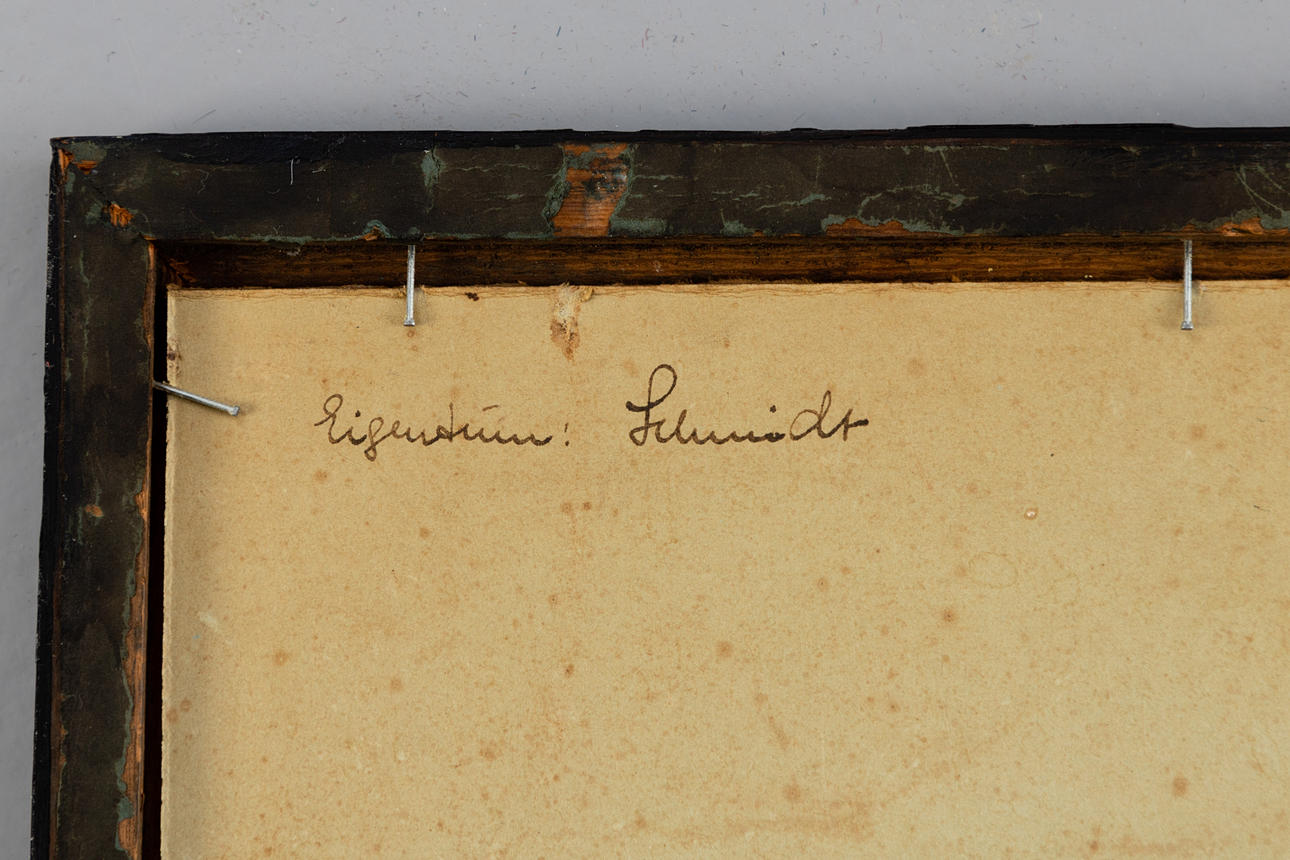 Eigentum: Schmidt